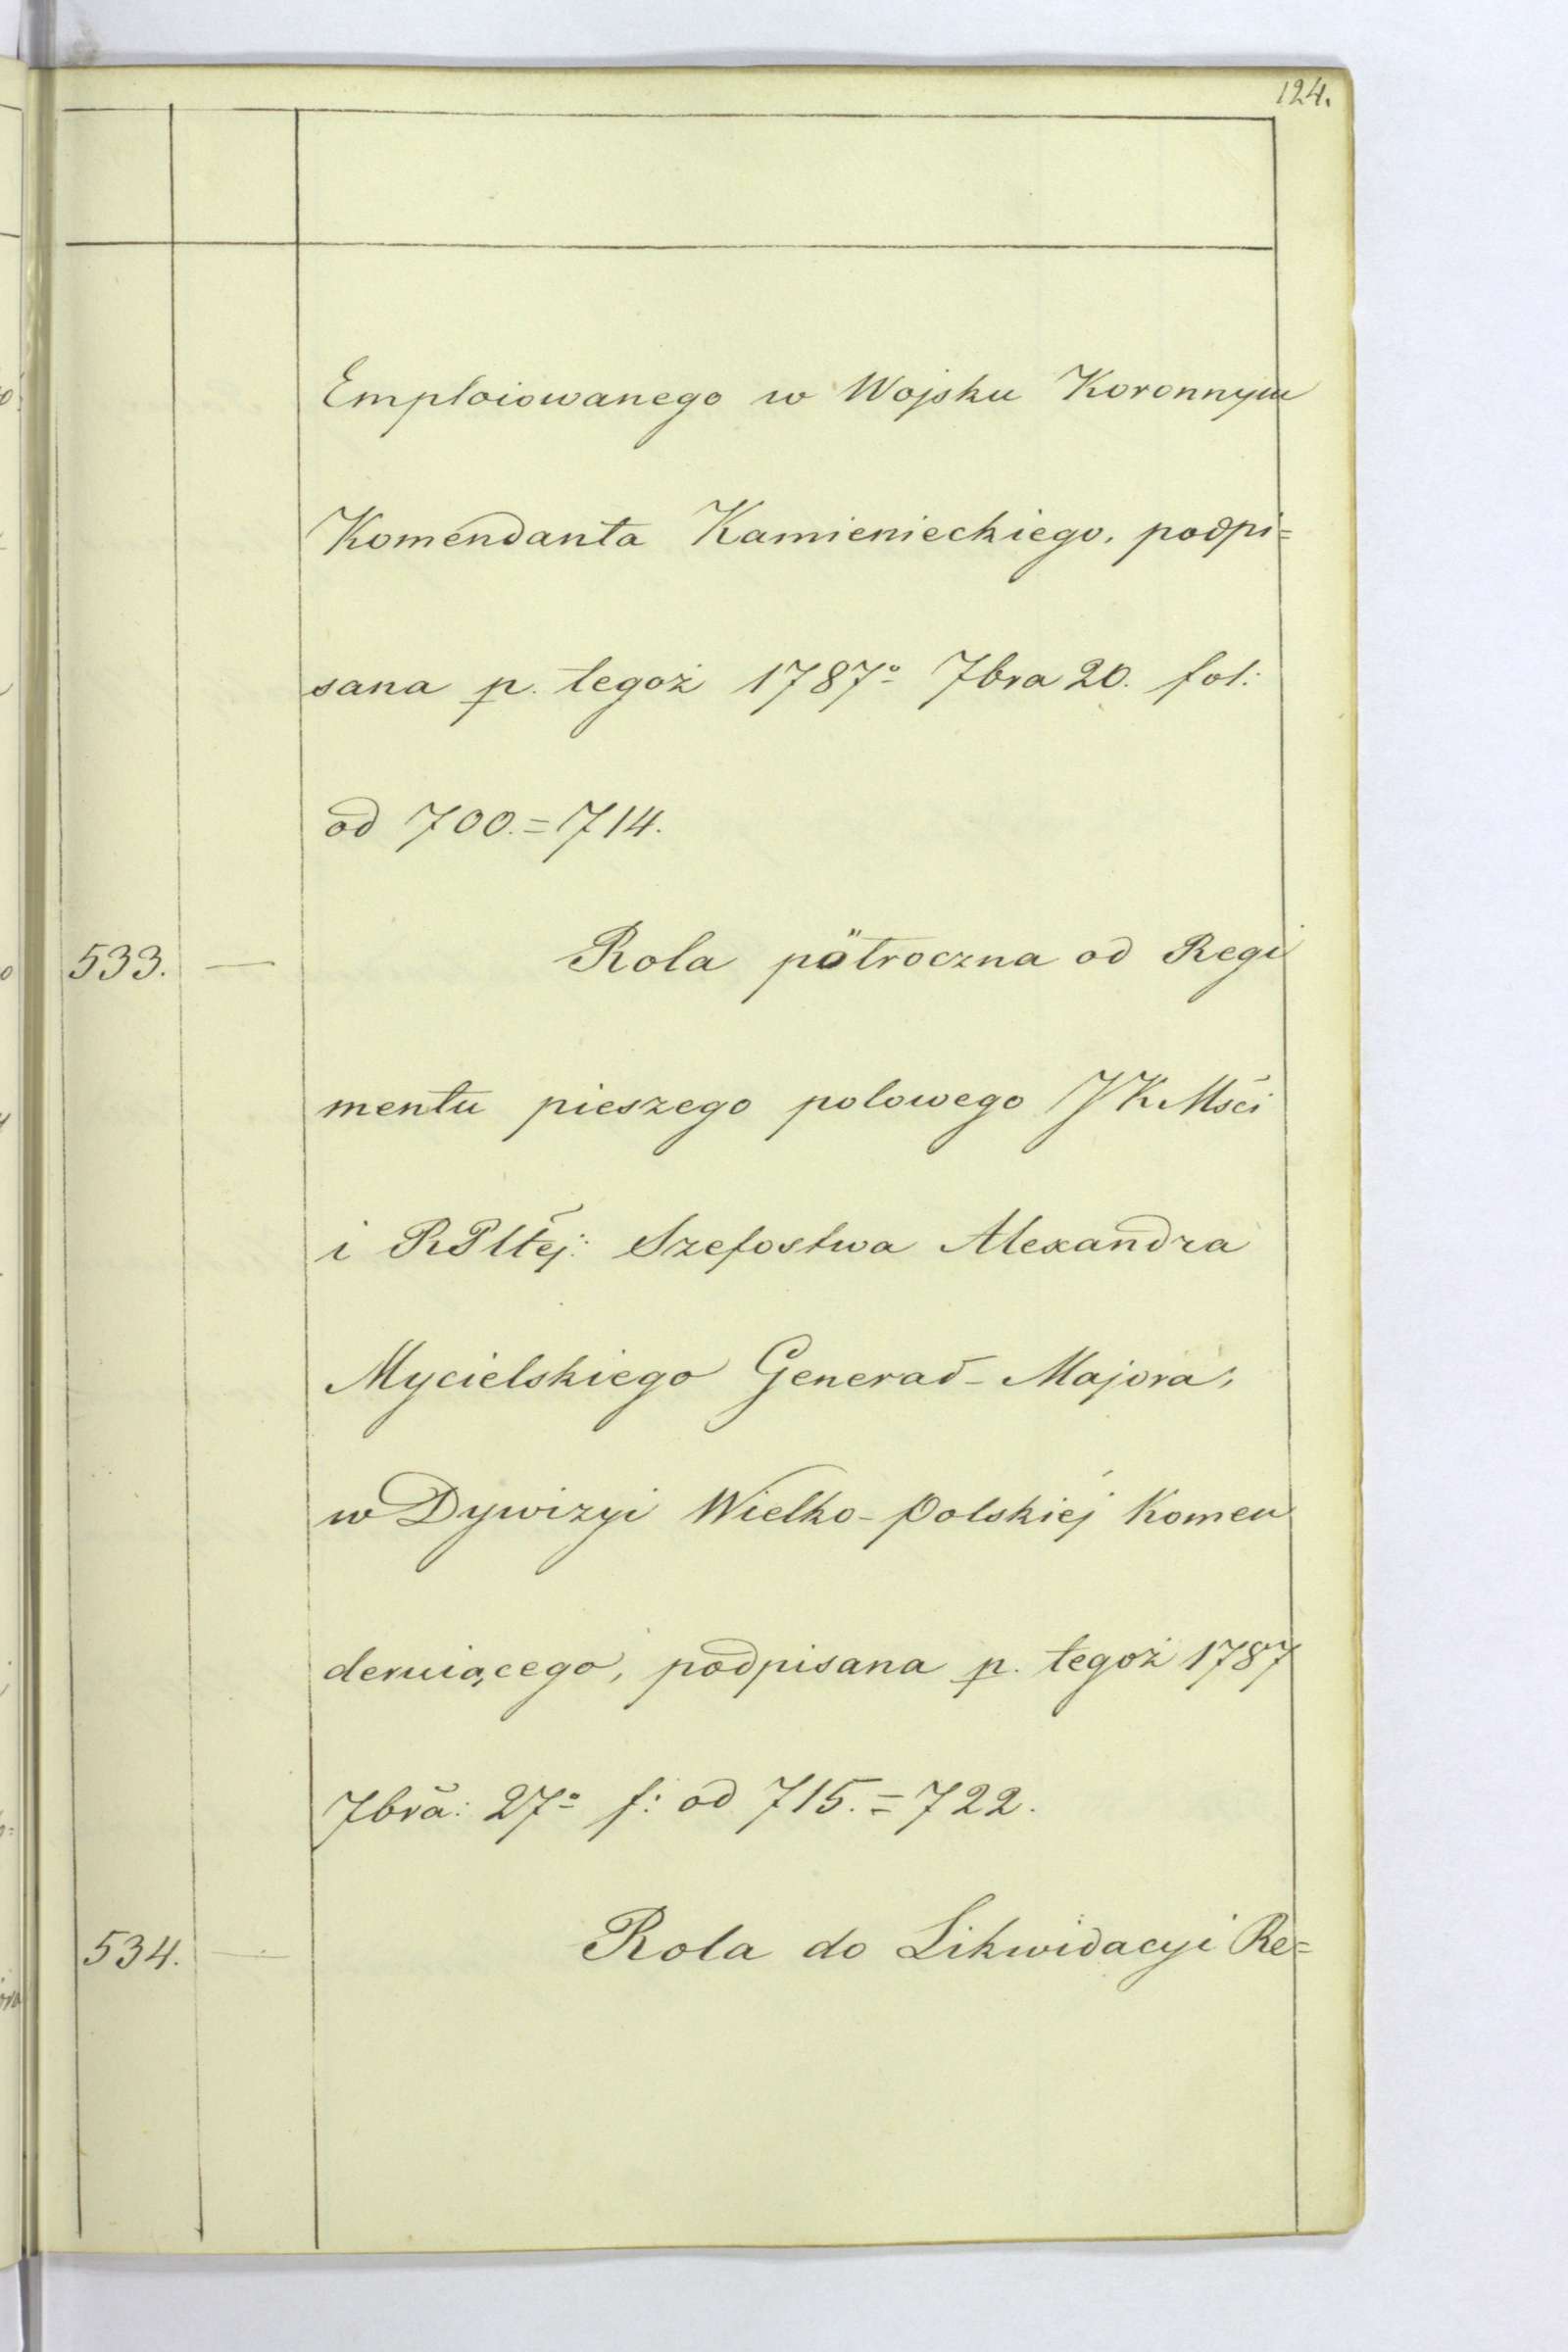 124.
Emploiowanego w Wojsku Koronnym
Komendanta Kamienieckiego, podpi=
sana p. tegoż 1787º 7bra 20. fol:
od 700.=714.
533. — Rola pötroczna od Regi
mentu pieszego polowego JKMści
i RPltej: Szefostwa Alexandra
Mycielskiego Generał-Majora,
w Dywizyi Wielko-Polskiéj Komen
deruiącego, podpisana p. tegoż 1787
7bra: 27º f: od 715.=722.
534. — Rola do Likwidacyi Re=